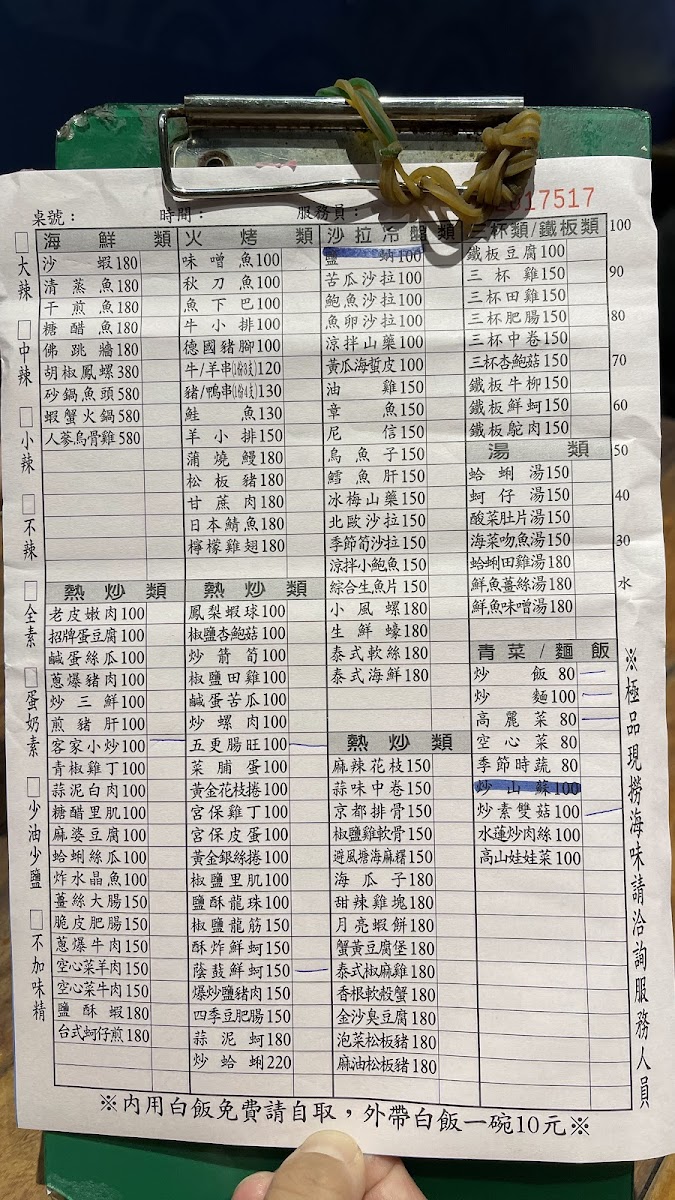 017517
桌號： 時間： 服務員：
□大辣
□中辣
□小辣
□不辣
□全素
□蛋奶素
□少油少鹽
□不加味精
海鮮類
沙蝦180
清蒸魚180
干煎魚180
糖醋魚180
佛跳牆180
胡椒鳳螺380
砂鍋魚頭580
蝦蟹火鍋580
人蔘烏骨雞580
熱炒類
老皮嫩肉100
招牌蛋豆腐100
鹹蛋絲瓜100
蔥爆豬肉100
炒三鮮100
煎豬肝100
客家小炒100
青椒雞丁100
蒜泥白肉100
糖醋里肌100
麻婆豆腐100
蛤蜊絲瓜100
炸水晶魚100
薑絲大腸150
脆皮肥腸150
蔥爆牛肉150
空心菜羊肉150
空心菜牛肉150
鹽酥蝦180
台式蚵仔煎180
火烤類
味噌魚100
秋刀魚100
魚下巴100
牛小排100
德國豬腳100
牛/羊串(1份3支)120
豬/鴨串(1份4支)130
鮭魚130
羊小排150
蒲燒鰻180
松板豬180
甘蔗肉180
日本鯖魚180
檸檬雞翅180
熱炒類
鳳梨蝦球100
椒鹽杏鮑菇100
炒箭筍100
椒鹽田雞100
鹹蛋苦瓜100
炒螺肉100
五更腸旺100
菜脯蛋100
黃金花枝捲100
宮保雞丁100
宮保皮蛋100
黃金銀絲捲100
椒鹽里肌100
鹽酥龍珠100
椒鹽龍筋150
酥炸鮮蚵150
蔭鼓鮮蚵150
爆炒鹽豬肉150
四季豆肥腸150
蒜泥蚵180
炒蛤蜊220
沙拉冷盤類
鹽蚋100
苦瓜沙拉100
鮑魚沙拉100
魚卵沙拉100
涼拌山藥100
黃瓜海蜇皮100
油雞150
章魚150
尼信150
烏魚子150
鱈魚肝150
冰梅山藥150
北歐沙拉150
季節筍沙拉150
涼拌小鮑魚150
綜合生魚片150
小風螺180
生鮮蠔180
泰式軟絲180
泰式海鮮180
熱炒類
麻辣花枝150
蒜味中卷150
京都排骨150
椒鹽雞軟骨150
避風塘海麻糬150
海瓜子180
甜辣雞塊180
月亮蝦餅180
蟹黃豆腐堡180
泰式椒麻雞180
香根軟殼蟹180
金沙臭豆腐180
泡菜松板豬180
麻油松板豬180
三杯類/鐵板類
鐵板豆腐100
三杯雞150
三杯田雞150
三杯肥腸150
三杯中卷150
三杯杏鮑菇150
鐵板牛柳150
鐵板鮮蚵150
鐵板鴕肉150
湯類
蛤蜊湯150
蚵仔湯150
酸菜肚片湯150
海菜吻魚湯150
蛤蜊田雞湯180
鮮魚薑絲湯180
鮮魚味噌湯180
青菜/麵飯
炒飯80
炒麵100
高麗菜80
空心菜80
季節時蔬80
炒山蘇100
炒素雙菇100
水蓮炒肉絲100
高山娃娃菜100
100
90
80
70
60
50
40
30
水
※極品現撈海味請洽詢服務人員
※內用白飯免費請自取，外帶白飯一碗10元※